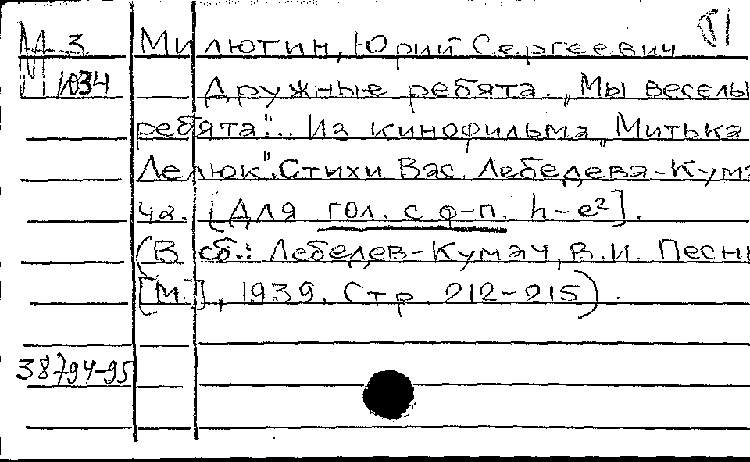 М 3 Милютин, Юрий Сергеевич 51
М 1034 Дружные ребята. „Мы веселы
ребята"... Из кинофильма „Митька
Лелюк". Стихи Вас. Лебедева-Кума
ча. [Для гол. с ф-п. h-e²].
(В сб.: Лебедев-Кумач, В.И. Песни
[М.], 1939. Стр. 212-215).
38794-95